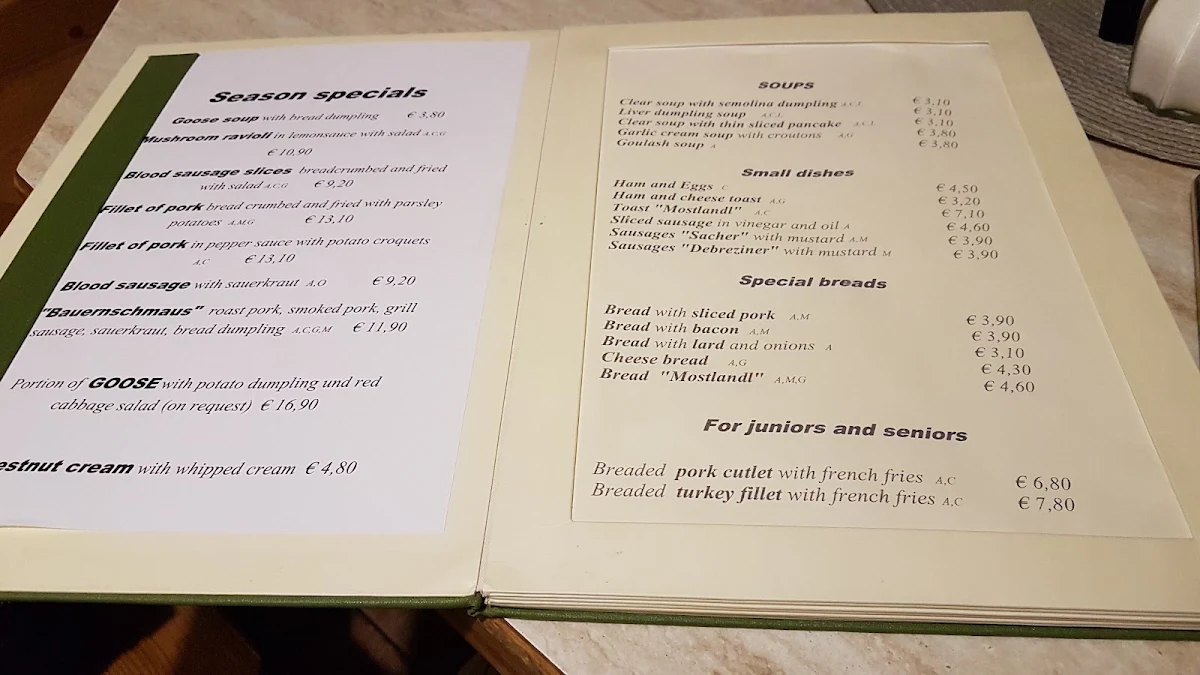 Season specials
Goose soup with bread dumpling € 3,80
Mushroom ravioli in lemonsauce with salad A,C,G
€ 10,90
Blood sausage slices breadcrumbed and fried
with salad A,C,G € 9,20
Fillet of pork bread crumbed and fried with parsley
potatoes A,M,G € 13,10
Fillet of pork in pepper sauce with potato croquets
A,C € 13,10
Blood sausage with sauerkraut A,O € 9,20
"Bauernschmaus" roast pork, smoked pork, grill
sausage, sauerkraut, bread dumpling A,C,G,M € 11,90
Portion of GOOSE with potato dumpling und red
cabbage salad (on request) € 16,90
estnut cream with whipped cream € 4,80
SOUPS
Clear soup with semolina dumpling A,C,L € 3,10
Liver dumpling soup A,C,L € 3,10
Clear soup with thin sliced pancake A,C,L € 3,10
Garlic cream soup with croutons A,G € 3,80
Goulash soup A € 3,80
Small dishes
Ham and Eggs C € 4,50
Ham and cheese toast A,G € 3,20
Toast "Mostlandl" A,C € 7,10
Sliced sausage in vinegar and oil A € 4,60
Sausages "Sacher" with mustard A,M € 3,90
Sausages "Debreziner" with mustard M € 3,90
Special breads
Bread with sliced pork A,M € 3,90
Bread with bacon A,M € 3,90
Bread with lard and onions A € 3,10
Cheese bread A,G € 4,30
Bread "Mostlandl" A,M,G € 4,60
For juniors and seniors
Breaded pork cutlet with french fries A,C € 6,80
Breaded turkey fillet with french fries A,C € 7,80